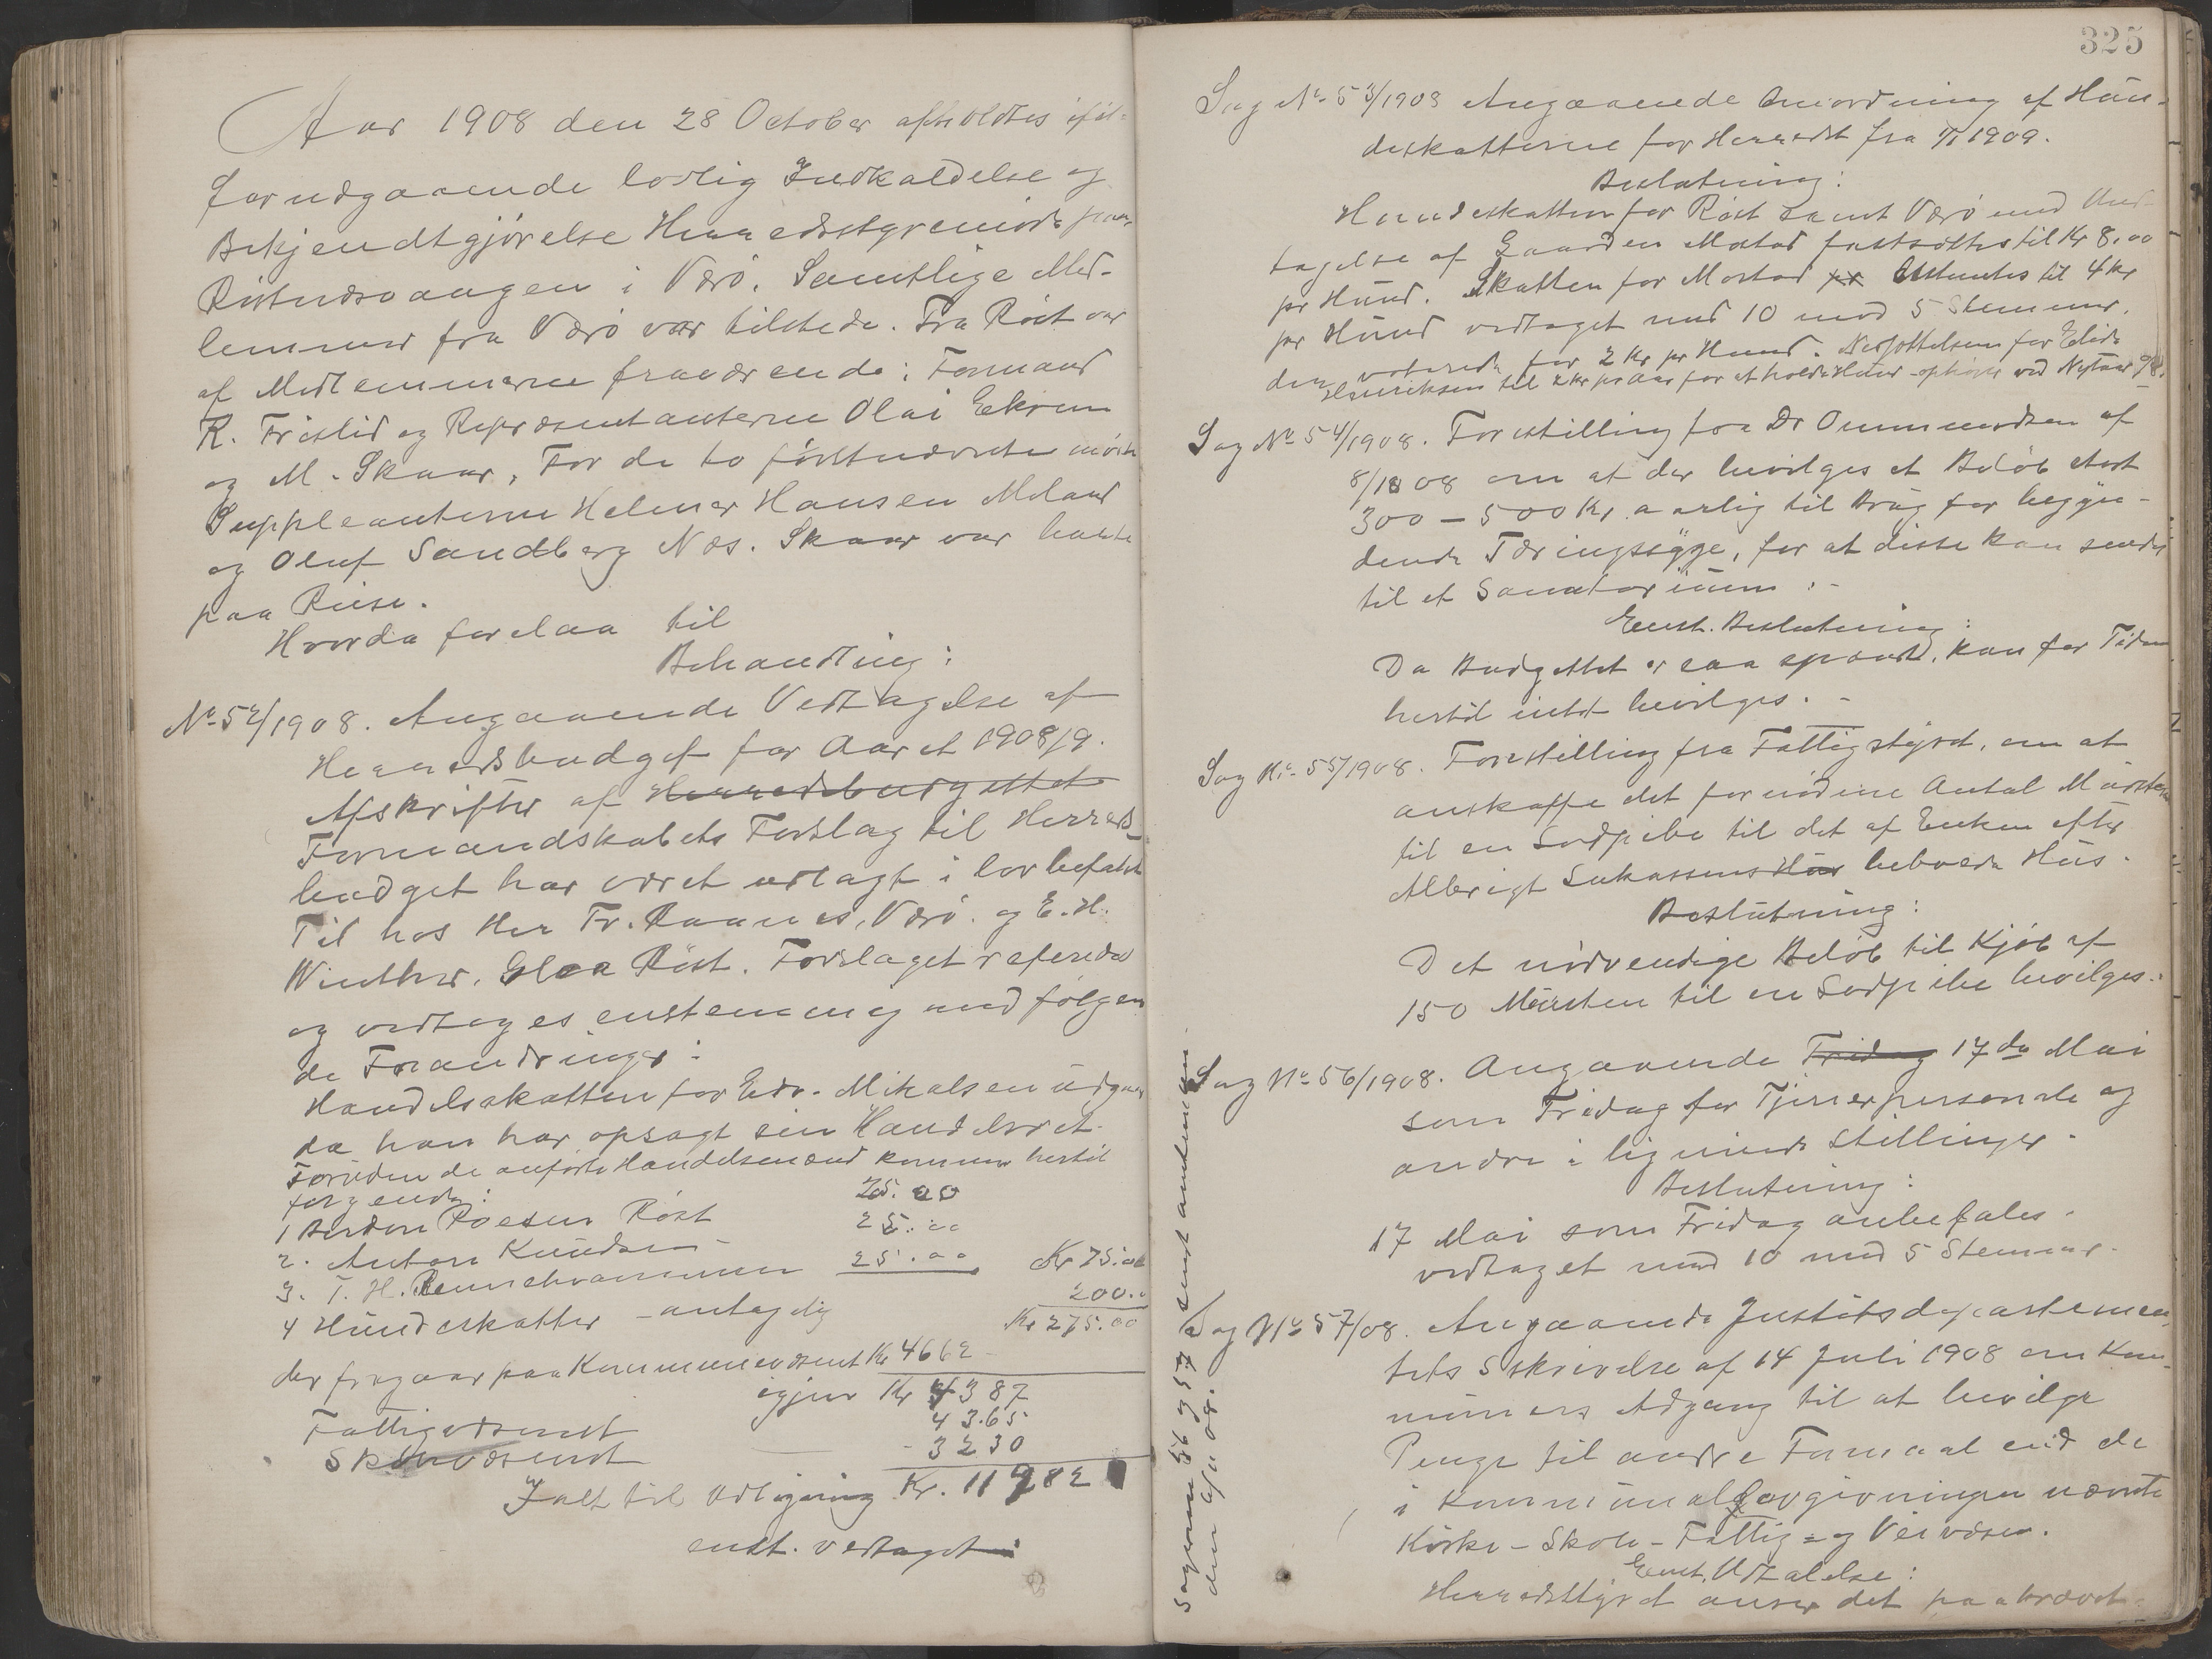 Aar 1908 den 28 October afholdtes iføl-
forudgaaende lovlig Indkaldelse og
Bekjendtgjørelse Herredsstyremøde paa
Røstnæsvaagen i Værø. Samtlige Med-
lemmer fra Værø var tilstede. Fra Røst var
af Medlemmerne fraværende: Formand
R. Frislid og Repræsentanterne Olai Ekrem
og M. Skaar, For de to førstnævnte møtte
Suppleanterne Helmer Hansen Meland
og Oluf Sandberg Næs. Skaar var
paa Reise.
Hvorda forelaa til
Behandling:
No 52/1908. Angaaende Vedtagelse af
Herredsbudget for Aaret 1908/9.
Afskrifter af Herredsbudgettet
Formandskabets Forslag til Herreds-
budget har været udlagt i lovbefalet
Tid hos Her Fr. Raanes, Værø. og E. H.
Winther, Glea Røst. Forslaget referedes
og vedtages enstemmig med følgen
de Forandringer:
Handelsskatten for Edv. Mikalsen udgaar
da han har opsagt sin Handelsret.
Foruden de anførte Handelsmænd kommer hertil
følgende:
25.00
1 Røst
25.00
2. Anton Knudsen
25.00 Kr 75.00
3. T. H.
200.00
4 Hundeskatter - antagelig
Kr 275.00
der fragaar paa Kommunevæsenet Kr 4662
igjen Kr 4387
Fattigvæsenet 4365
Skolevæsenet - 3230
Ialt til Udligning Kr. 11982
enst. vedtaget
325
Sag No 53/1908 Angaaende Anordning af Hun-
deskatterne for Herredet fra 1/1 1909.
Beslutning:
Hundeskatten for Røst samt Værø med Und-
tagelse af Gaarden Mostad fastsættes til Kr 8.00
pr Hund. Skatten for Mostad bestemtes til 4 kr
pr Hund vedtaget med 10 mod 5 Stemmer,
der voterede for 2 Kr pr Hund. Nedsættelsen for
Henriksen til 2 kr pr Aar for at holde Hund - ophører ved Nytaar 98.
Sag No 54/1908. Forestilling fra Dr Ommundsen af
8/10 08 om at der bevilges et Beløb stort
300 - 500 Kr. aarlig til Brug for begyn-
dende Tæringssyge, for at disse kan sendes
til et Sanatorium :-
Enst. Beslutning:
Da Budgettet er saa spændt, kan for Tiden
hertil intet bevilges. -
Sag No 55/1908. Forestilling fra Fattigstyret, om at
anskaffe det fornødne Antal Mursten
til en Sodpibe til det af Enken efter
Albrigt Lukassens Hus beboede Hus.
Beslutning:
Det nødvendige Beløb til Kjøb af
150 Mursten til en Sodpibe bevilges.:
Sag No 56/1908. Angaaende Fridag 17de Mai
som Fridag for Tjenerpersonale og
andre i lignende Stillinger.
Beslutning:
17 Mai som Fridag anbefales.
vedtaget med 10 mod 5 Stemmer.
Sag No 57/08. Angaaende Justitsdepartemen-
tets Skrivelse af 14 Juli 1908 om Kom-
muners Adgang til at bevilge
Penge til andre Formaal end de
i Kommunallovgivningen nævnte
Kirke - Skole - Fattig - og Veivæsen.
Enst. Udtalelse:
Herredsstyret anser det paakrævet
Sagerne 56 og 57 sendt amtmanden
den 08.